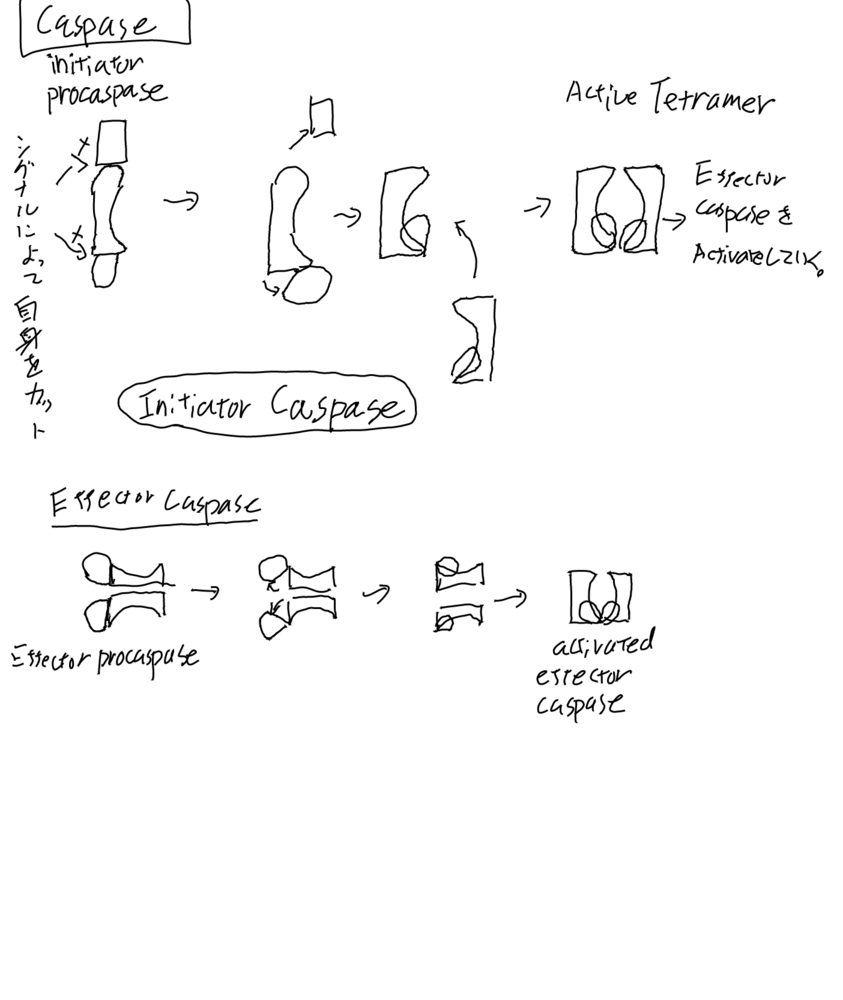 Caspase
initiator
procaspase
シグナルによって自身をカット
Active Tetramer
Effector
caspaseを
Activateしていく。
Initiator Caspase
Effector Caspase
Effector procaspase
activated
effector
caspase